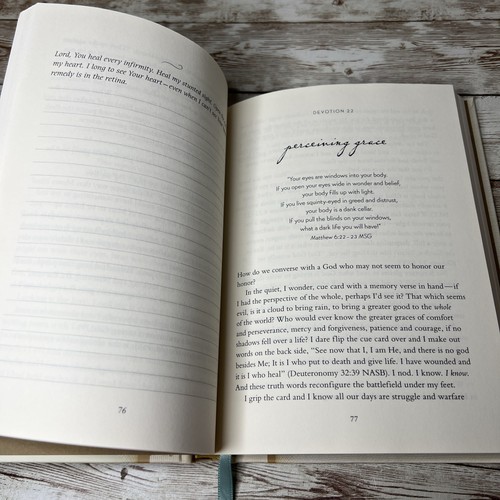 Lord, You heal every infirmity. Heal my stunted sight
my heart. I long to see Your heart—even when I can't
remedy is in the retina.
76
DEVOTION 22
perceiving grace
"Your eyes are windows into your body.
If you open your eyes wide in wonder and belief,
your body fills up with light.
If you live squinty-eyed in greed and distrust,
your body is a dank cellar.
If you pull the blinds on your windows,
what a dark life you will have!"
Matthew 6:22-23 MSG
How do we converse with a God who may not seem to honor our
honor?
In the quiet, I wonder, cue card with a memory verse in hand—if
I had the perspective of the whole, perhaps I'd see it? That which seems
evil, is it a cloud to bring rain, to bring a greater good to the whole
of the world? Who would ever know the greater graces of comfort
and perseverance, mercy and forgiveness, patience and courage, if no
shadows fell over a life? I dare flip the cue card over and I make out
words on the back side, "See now that I, I am He, and there is no god
besides Me; It is I who put to death and give life. I have wounded and
it is I who heal" (Deuteronomy 32:39 NASB). I nod. I know. I know.
And these truth words reconfigure the battlefield under my feet.
I grip the card and I know all our days are struggle and warfare
77